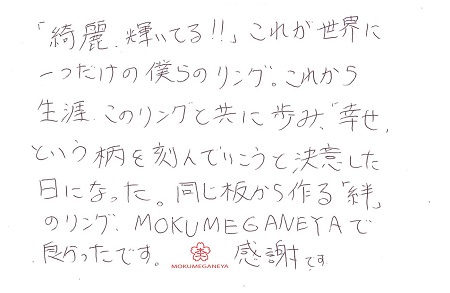 「綺麗、輝いてる!!」これが世界に
一つだけの僕らのリング。これから
生涯、このリングと共に歩み、「幸せ」
という柄を刻んでいこうと決意した
日になった。同じ板から作る「絆」
のリング、MOKUMEGANEYAで
良かったです。 感謝です
MOKUMEGANEYA